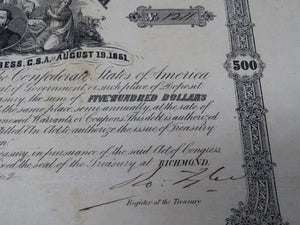 No. 121
RESS, C.S.A. AUGUST 19, 1861.
Confederate States of America
of Government or such place of Deposit
sury, the sum of FIVE HUNDRED DOLLARS
500
the same place semi-annually, at the rate of
Warrants or Coupons. This debt is authorized
An Act to authorize the issue of Treasury
easury, in pursuance of the said Act of Congress
the seal of the Treasury at RICHMOND.
Ro: Tyler
Register of the Treasury